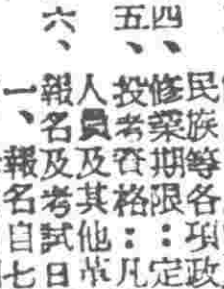 民族等各項政
四、修業期限：定
五、投考資格：凡
人員及其他革
六、報名及考試日
一、報名自七